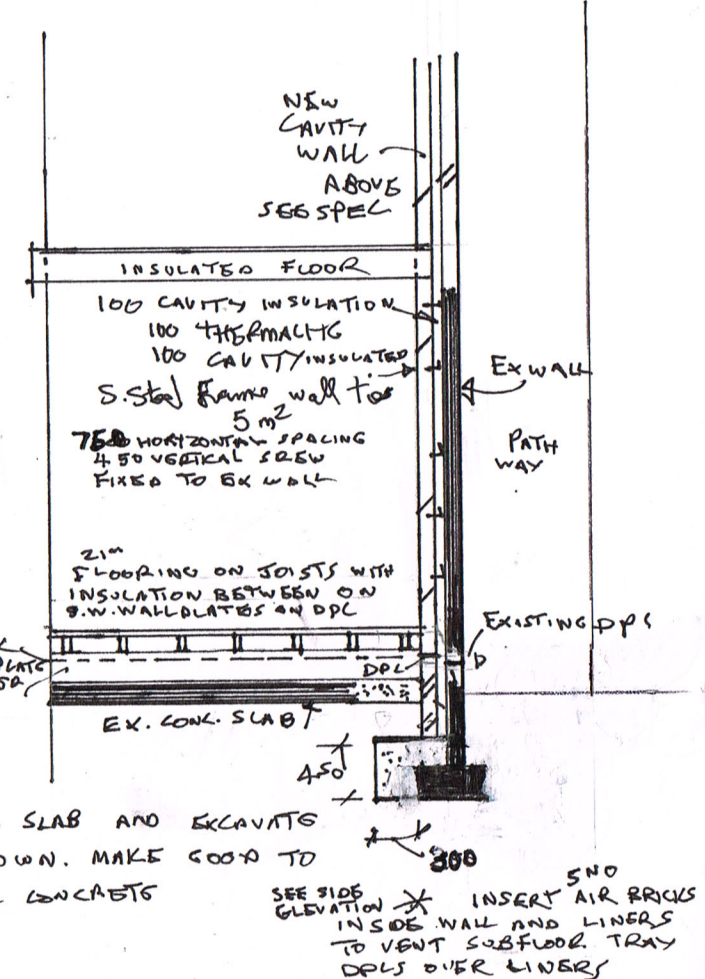 NEW
CAVITY
WALL
ABOVE
SEE SPEC
INSULATED FLOOR
100 CAVITY INSULATION
100 THERMALITE
100 CAVITY INSULATED
S. Steel Frame wall ties
5 m²
750 HORIZONTAL SPACING
450 VERTICAL SCREW
FIXED TO EX WALL
EX WALL
PATH
WAY
FLOORING ON JOISTS WITH
INSULATION BETWEEN ON
S.W. WALLPLATES ON DPC
EXISTING DPC
DPC
EX. CONC. SLAB
450
SLAB AND EXCAVATE
OWN. MAKE GOOD TO
CONCRETE
300
SEE SIDE
ELEVATION
5 NO
INSERT AIR BRICKS
IN SIDE WALL AND LINERS
TO VENT SUBFLOOR TRAY
DPCS OVER LINERS